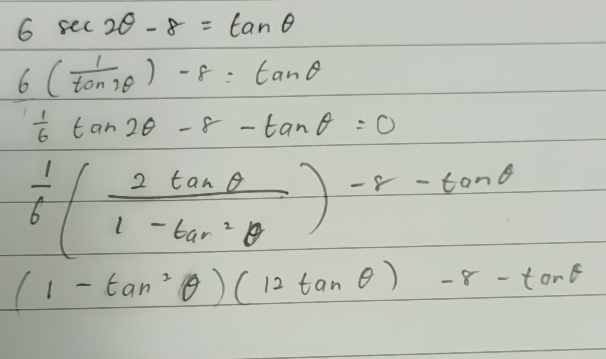 6 sec 2θ - 8 = tan θ
6 ( 1 / tan 2θ ) - 8 = tan θ
1/6 tan 2θ - 8 - tan θ = 0
1/6 ( 2 tan θ / 1 - tan² θ ) - 8 - tan θ
( 1 - tan² θ ) ( 12 tan θ ) - 8 - tan θ